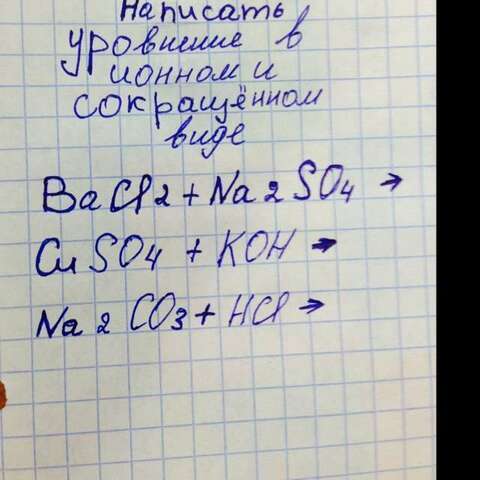 Написать
уровнение в
ионном и
сокращённом
виде
BaCl2 + Na2SO4 →
CuSO4 + KOH →
Na2CO3 + HCl →